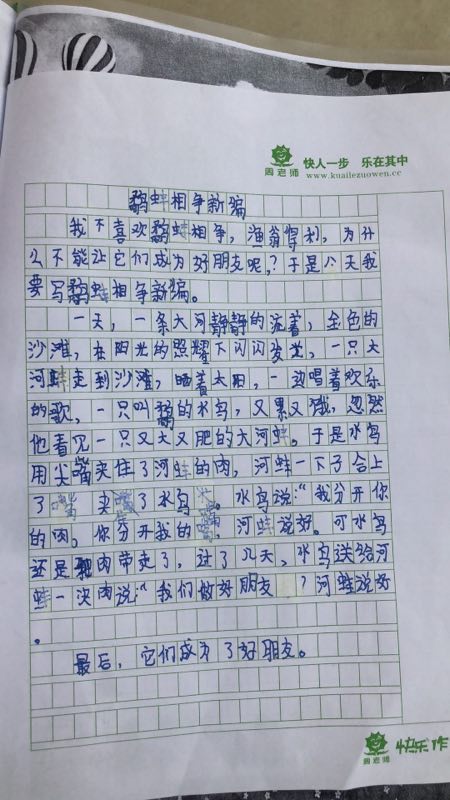 周老师 快人一步 乐在其中
www.kuailezuowen.cc
鹬蚌相争新编
我不喜欢鹬蚌相争，渔翁得利，为什
么不能让它们成为好朋友呢？于是今天我
要写鹬蚌相争新编。
一天，一条大河静静的流着，金色的
沙滩，在阳光的照耀下闪闪发光，一只大
河蚌走到沙滩，晒着太阳，一边唱着欢乐
的歌，一只叫鹬的水鸟，又累又饿，忽然
他看见一只又大又肥的大河蚌。于是水鸟
用尖嘴夹住了河蚌的肉，河蚌一下子合上
了嘴 夹 了水鸟 水鸟说：“我分开你
的肉，你分开我的嘴。河蚌说好。可水鸟
还是把肉带走了，过了几天，水鸟送给河
蚌一决肉说：“我们做好朋友 ？河蚌说好
。
最后，它们成为了好朋友。
周老师 快乐作